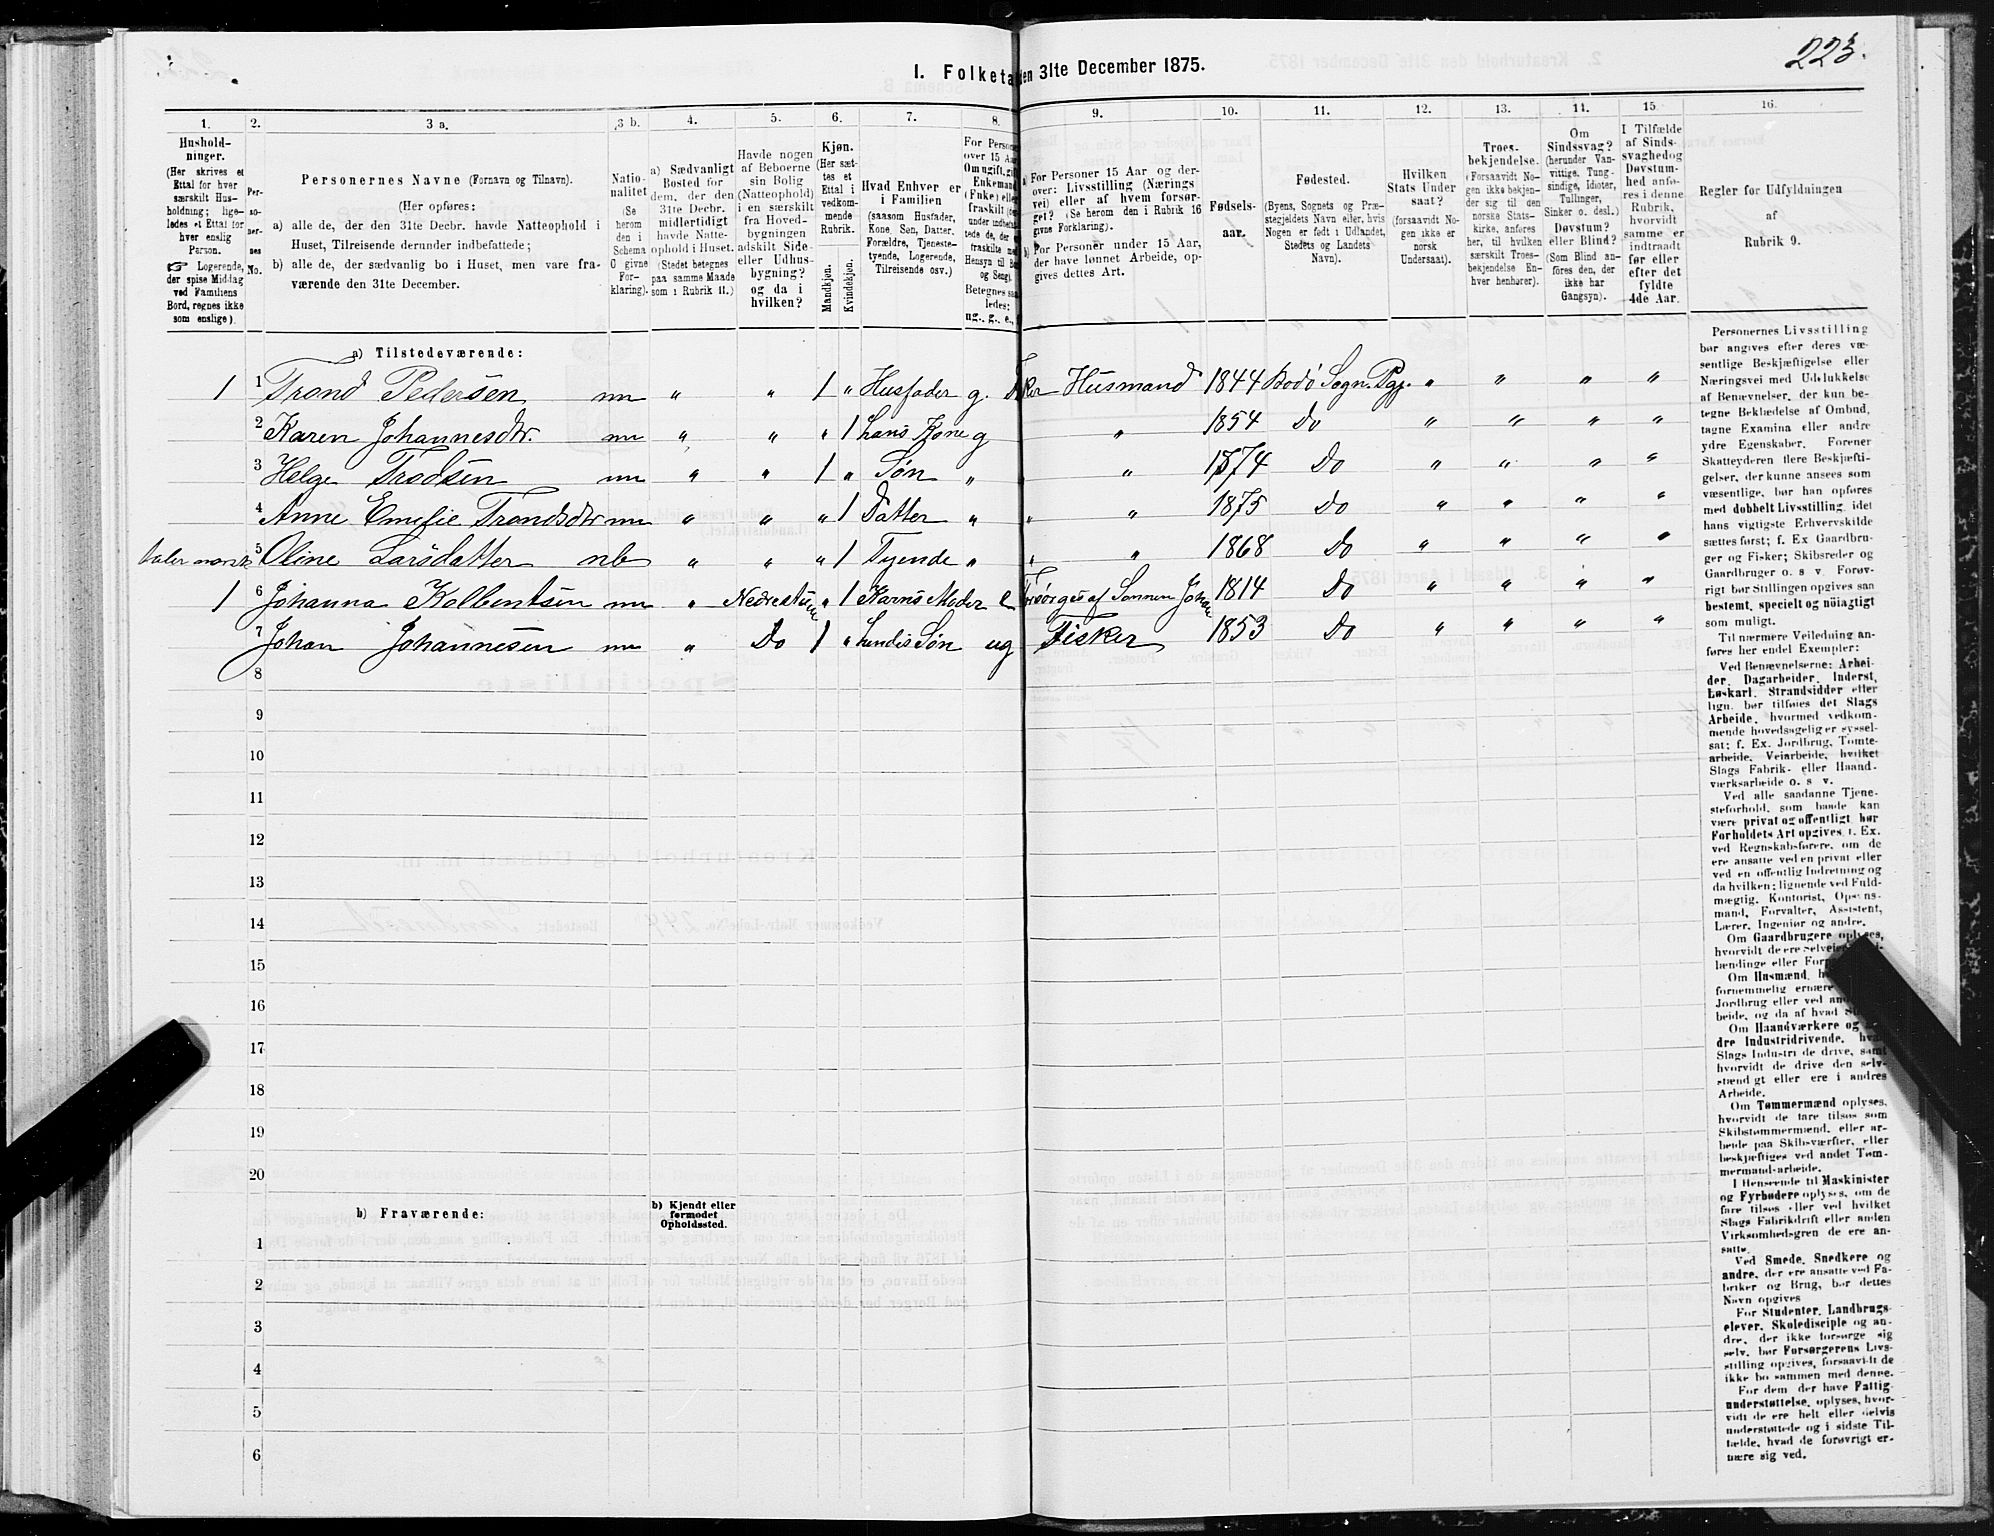 I. Folketa en 31te December 1875.
223.
1. 2. 3 a. 3 b. 4. 5. 6. 7. 8. 9. 10. 11. 12. 13. 14. 15. 16.
Hushold-
ninger.
(Her skrives et
Ettal for hver
særskilt Hus-
holdning; lige-
ledes et Ettal for
hver enslig
Person.
☞ Logerende,
der spise Middag
ved Familiens
Bord, regnes ikke
som enslige).
Per-
so-
ner-
nes
No.
Personernes Navne (Fornavn og Tilnavn).
(Her opføres:
a) alle de, der den 31te Decbr. havde Natteophold i
Huset, Tilreisende derunder indbefattede;
b) alle de, der sædvanlig bo i Huset, men vare fra-
værende den 31te December.
Natio-
nalitet
(Se
herom
den i
Schema
O givne
For-
klaring).
a) Sædvanligt
Bosted for
dem, der den
31te Decbr.
havde Natte-
ophold i Huset.
(Stedet betegnes
paa samme Maade
som i Rubrik 11.)
Havde nogen
af Beboerne
sin Bolig
(Natteophold)
i en særskilt
fra Hoved-
bygningen
adskilt Side-
eller Udhus-
bygning?
og da i
hvilken?
Kjøn.
(Her sæt-
tes et
Ettal i
vedkom-
mende
Rubrik.
Mandkjøn.
Kvindekjøn.
Hvad Enhver er
i Familien
(saasom Husfader,
Kone, Søn, Datter,
Forældre, Tjeneste-
tyende, Logerende,
Tilreisende osv.)
For Person
over 15 Aa
Om ugift, gi
Enkemand
(Enke) elle
fraskilt
under indbefat-
tede de, der e
fraskilte m
Hensyn til Bo
og Seng).
Betegnes saa
ledes:
ug., g., e.,
a) For Personer 15 Aar og der-
over: Livsstilling (Nærings
vei) eller af hvem forsør-
get? (Se herom den i Rubrik 16
givne Forklaring).
b) For Personer under 15 Aar,
der have lønnet Arbeide, op-
gives dettes Art.
Fødsels-
aar.
Fødested.
(Byens, Sognets og Præ-
stegjeldets Navn eller, hvis
Nogen er født i Udlandet,
Stedets og Landets
Navn).
Hvilken
Stats Under
saat?
(forsaavidt No-
gen ikke er
norsk
Undersaat).
Troes-
bekjendelse.
(Forsaavidt No-
gen ikke bekjen-
der sig til den
norske Stats-
kirke, anføres
her, til hvilken
særskilt Troes-
bekjendelse En-
hver henhører).
Om
Sindssvag?
(herunder Van-
vittige, Tung-
sindige, Idioter,
Tullinger,
Sinker o. desl.)
Døvstum?
eller Blind?
(Som Blind an-
føres den, der
ikke har
Gangsyn).
I Tilfælde
af Sinds-
svaghed og
Døvstum-
hed anfø-
res i denne
Rubrik,
hvorvidt
samme er
indtraadt
før eller
efter det
fyldte
4de Aar.
Regler for Udfyldningen
af
Rubrik 9.
a) Tilstedeværende:
1 1 Trond Pedersen nn „ „ 1 „ Husfader g. ker Husmand 1844 Bodø Sogn. Pgj. „ „ „ „
2 Karen Johannesdtr. nn „ „ „ 1 hans Kone g „ 1854 Do „ „ „ „
3 Helge Trodsen nn „ „ 1 „ Søn „ „ 1874 Do „ „ „ „
4 Anne Emelie Trondsdtr nn „ „ „ 1 Datter „ „ „ 1875 Do „ „ „ „
taler norsk 5 Oline Larsdatter nlb „ „ „ 1 Tyende „ „ „ 1868 Do „ „ „ „
1 6 Johanna Kolbentsen nn „ Nedrestuen „ 1 Karns Moder e Forsørges af Sønnen Johan 1814 Do „ „ „ „
7 Johan Johannesen nn „ Do 1 „ hendes Søn ug Fisker 1853 Do „ „ „ „
8
9
10
11
12
13
14
15
16
17
18
19
20
b) Fraværende:
b) Kjendt eller
formodet
Opholdssted.
1
2
3
4
5
6
Personernes Livsstilling
bør angives efter deres væ-
sentlige Beskjæftigelse eller
Næringsvei med Udelukkelse
af Benævnelser, der kun be-
tegne Beklædelse af Ombud,
tagne Examina eller andre
ydre Egenskaber. Forener
Skatteyderen flere Beskjæfti-
gelser, der kunne ansees som
væsentlige, bør han opføres
med dobbelt Livsstilling, idet
hans vigtigste Erhvervskilde
sættes først; f. Ex Gaardbru-
ger og Fisker; Skibsreder og
Gaardbruger o. s v. Forøv-
rigt bør Stillingen opgives saa
bestemt, specielt og nöiagtigt
som muligt.
Til nærmere Veiledning an-
føres her endel Exempler:
Ved Benævnelserne: Arbei-
der, Dagarbeider, Inderst,
Løskarl, Strandsidder eller
lign. bør tilføies det Slags
Arbeide, hvormed vedkom-
mende hovedsagelig er syssel-
sat; f. Ex. Jordbrug, Tomte-
arbeide, Veiarbeide, hvilket
Slags Fabrik- eller Haand-
værksarbeide o. s v.
Ved alle saadanne Tjene-
steforhold, som baade kan
være privat og offentligt, bør
Forholdets Art opgives, f. Ex.
ved Regnskabsførere, om de
ere ansatte ved en privat eller
ved en offentlig Indretning og
da hvilken; lignende ved Fuld-
mægtig, Kontorist, Opsyns-
mand, Forvalter, Assistent,
Lærer, Ingeniør og andre.
Om Gaardbrugere oplyses,
hvorvidt de ere Selveiere,
lændinge eller
Om Husmænd,
fornemmelig
Jordbrug eller ved
beide, og da af hvad
Om Haandværkere og
dre Industridrivende,
Slags Industri de drive, samt
hvorvidt de drive den selv-
stændigt eller ere i andres
Arbeide.
Om Tømmermænd oplyses,
hvorvidt de fare tilsøs som
Skibstømmermænd, eller ar-
beide paa Skibsværfter, eller
beskjæftiges ved andet Tøm-
mermand-arbeide.
I Henseende til Maskinister
og Fyrbødere oplyses, om de
fare tilsøs eller ved hvilket
Slags Fabrikdrift eller anden
Virksomhedsgren de ere an-
satte.
Ved Smede, Snedkere og
andre, der ere ansatte ved Fa-
briker og Brug, bør dettes
Navn opgives
For Studenter, Landbrugs-
elever, Skoledisciple og an-
dre, der ikke forsørge sig
selv, bør Forsørgerens Livs-
stilling opgives, forsaavidt de
ikke bo sammen med denne.
For dem der have Fattig-
understøttelse, oplyses, hvor-
vidt de ere helt eller delvis
understøttede og i sidste Til-
fælde, hvad de forøvrigt er-
nære sig ved.